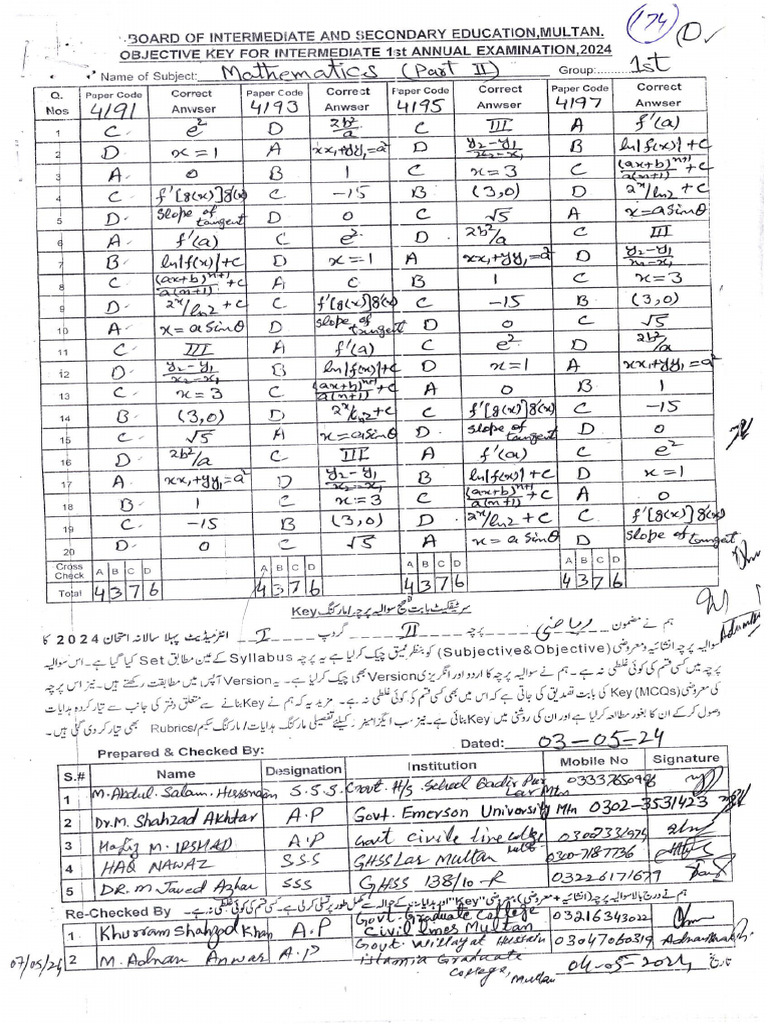 (174)
BOARD OF INTERMEDIATE AND SECONDARY EDUCATION,MULTAN.
OBJECTIVE KEY FOR INTERMEDIATE 1st ANNUAL EXAMINATION,2024
Name of Subject: Mathematics (Part II) Group:........ 1st
Q. Nos Paper Code 4191 Correct Anwser Paper Code 4193 Correct Anwser Paper Code 4195 Correct Anwser Paper Code 4197 Correct Anwser
1 C e² D 2b²/a C III A f'(a)
2 D x=1 A xx₁+yy₁=a² D y₂-y₁/x₂-x₁ B ln|f(x)|+c
3 A 0 B 1 C x=3 C (ax+b)ⁿ⁺¹/a(n+1) + c
4 C f'[g(x)]g'(x) C -15 B (3,0) D 2ˣ/ln2 + c
5 D slope of tangent D 0 C √5 A x=a sinθ
6 A f'(a) C e² D 2b²/a C III
7 B ln|f(x)|+c D x=1 A xx₁+yy₁=a² D y₂-y₁/x₂-x₁
8 C (ax+b)ⁿ⁺¹/a(n+1) + c A 0 B 1 C x=3
9 D 2ˣ/ln2 + c C f'[g(x)]g'(x) C -15 B (3,0)
10 A x=a sinθ D slope of tangent D 0 C √5
11 C III A f'(a) C e² D 2b²/a
12 D y₂-y₁/x₂-x₁ B ln|f(x)|+c D x=1 A xx₁+yy₁=a²
13 C x=3 C (ax+b)ⁿ⁺¹/a(n+1) + c A 0 B 1
14 B (3,0) D 2ˣ/ln2 + c C f'[g(x)]g'(x) C -15
15 C √5 A x=a sinθ D slope of tangent D 0
16 D 2b²/a C III A f'(a) C e²
17 A xx₁+yy₁=a² D y₂-y₁/x₂-x₁ B ln|f(x)|+c D x=1
18 B 1 C x=3 C (ax+b)ⁿ⁺¹/a(n+1) + c A 0
19 C -15 B (3,0) D 2ˣ/ln2 + c C f'[g(x)]g'(x)
20 D 0 C √5 A x=a sinθ D slope of tangent
Cross Check A B C D A B C D A B C D A B C D
Total 4 3 7 6 4 3 7 6 4 3 7 6 4 3 7 6
سرٹیفکیٹ بابت تصحیح سوالیہ پرچہ/مارکنگ Key
ہم نے مضمون ریاضی پرچہ II گروپ I انٹرمیڈیٹ پہلا سالانہ امتحان 2024 کا
سوالیہ پرچہ انشائیہ و معروضی (Subjective&Objective) کو بنظر عمیق چیک کر لیا ہے یہ پرچہ Syllabus کے عین مطابق Set کیا گیا ہے۔ اس سوالیہ
پرچہ میں کسی قسم کی کوئی غلطی نہ ہے۔ ہم نے سوالیہ پرچہ کا اردو اور انگریزی Version بھی چیک کر لیا ہے۔ یہ Version آپس میں مطابقت رکھتے ہیں۔ نیز اس پرچہ
کی معروضی (MCQs) Key کی بابت تصدیق کی جاتی ہے کہ اس میں بھی کسی قسم کی کوئی غلطی نہ ہے۔ مزید یہ کہ ہم نے Key بنانے سے متعلق دفتر کی جانب سے تیار کردہ ہدایات
وصول کر کے ان کا بغور مطالعہ کر لیا ہے اور ان کی روشنی میں Key بنائی ہے۔ نیز سب ایگزامینرز کیلئے تفصیلی مارکنگ ہدایات/مارکنگ سکیم/Rubrics بھی تیار کر دی گئی ہیں۔
Prepared & Checked By: Dated: 03-05-24
S.# Name Designation Institution Mobile No Signature
1 M. Abdul Salam S.S.S Govt. H/S School Qadir Pur Lar Mtn
2 Dr.M. Shahzad Akhtar A.P Govt. Emerson University Mtn 0302-3531423
3 Hafiz M. IRSHAD A.P Govt civile line college
4 HAQ NAWAZ SSS GHSS Lar Multan 0300-7187736
5 DR. M Javed Azhar SSS GHSS 138/10-R 03226171679
Re-Checked By
1 Khurram Shahzad Khan A.P Govt. Graduate College Civil Lines Multan 03216343022
2 M. Adnan Anwar A.P Govt Willayat Hussain Islamia Graduate College, Multan 03047060319
07/05/24 04-05-2024